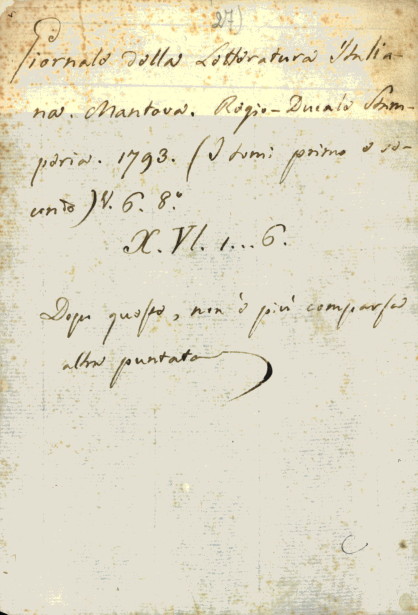 27)
Giornale della Letteratura Italia-
na. Mantova. Regio-Ducale Stam-
peria. 1793. (I tomi primo e se-
condo) V. 6. 8.º
X. VI. 1...6.
Dopo questo, non è più comparsa
altra puntata